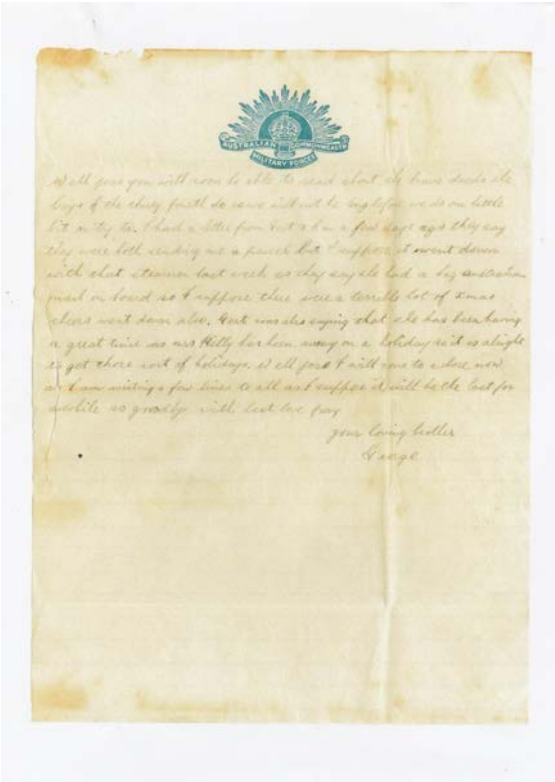 AUSTRALIAN COMMONWEALTH
MILITARY FORCES
Well you will soon be able to read about the brave deeds the
boys of the thirty fourth do as we will not be long before we do our little
bit or try to. I had a letter from Gert a few days ago they say
they were both sending me a parcel but I suppose it went down
with that steamer last week as they say she had a big australian
mail on board so I suppose there were a terrible lot of xmas
cheers went down also. Gert was also saying that she has been having
a great time as mrs Kelly has been away on a holiday so it is alright
to get those sort of holidays. Well I will have to close now
as I am writing a few lines to all as I suppose it will be the last for
awhile so goodby with best love from
your loving brother
George